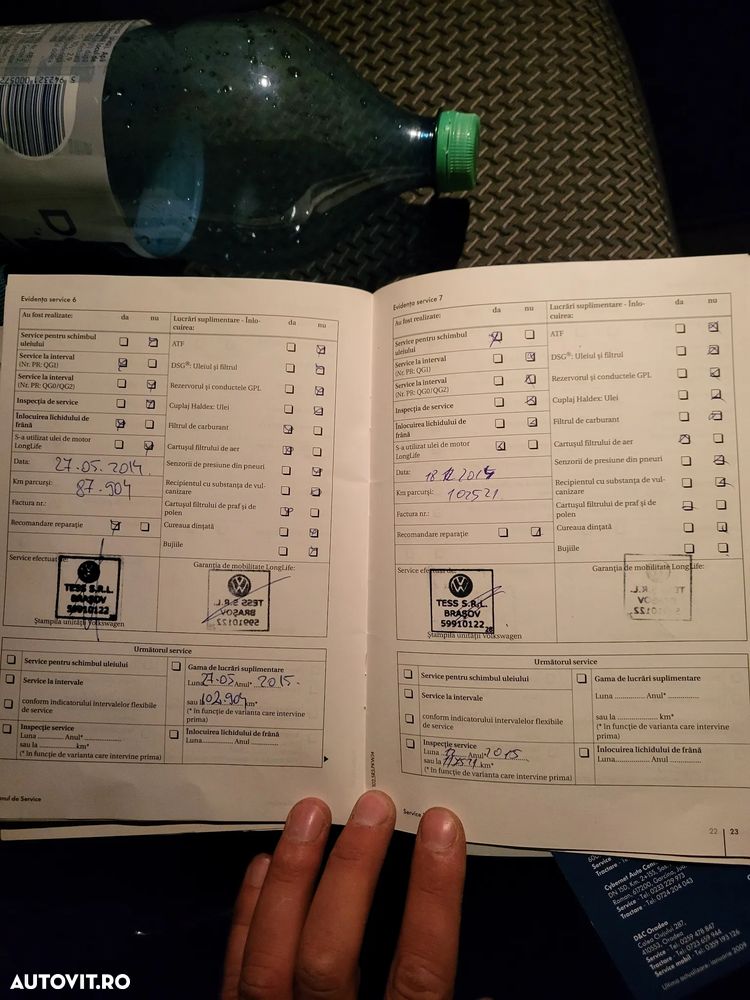 5 942321 000572
Evidența service 6
Au fost realizate:
da
nu
Lucrări suplimentare - Înlocuirea:
da
nu
Service pentru schimbul
uleiului
Service la interval
(Nr. PR: QG1)
Service la interval
(Nr. PR: QG0/QG2)
Inspecția de service
Înlocuirea lichidului de
frână
S-a utilizat ulei de motor
LongLife
Data: 27.05.2014
Km parcurși: 87.904
Factura nr.:
Recomandare reparație
ATF
DSG®: Uleiul și filtrul
Rezervorul și conductele GPL
Cuplaj Haldex: Ulei
Filtrul de carburant
Cartușul filtrului de aer
Senzorii de presiune din pneuri
Recipientul cu substanța de vulcanizare
Cartușul filtrului de praf și de
polen
Cureaua dințată
Bujiile
Service efectuat de:
TESS S.R.L.
BRAȘOV
59910122
Ștampila unității Volkswagen
Garanția de mobilitate LongLife:
TESS S.R.L.
BRAȘOV
59910122
Următorul service
Service pentru schimbul uleiului
Service la intervale
conform indicatorului intervalelor flexibile
de service
Inspecție service
Luna ........ Anul* ........
sau la ........ km*
(* în funcție de varianta care intervine prima)
Gama de lucrări suplimentare
Luna 27.05 Anul* 2015.
sau la 102.904 km*
(* în funcție de varianta care intervine
prima)
Înlocuirea lichidului de frână
Luna ........ Anul ........
Evidența service 7
Au fost realizate:
da
nu
Lucrări suplimentare - Înlocuirea:
da
nu
Service pentru schimbul
uleiului
Service la interval
(Nr. PR: QG1)
Service la interval
(Nr. PR: QG0/QG2)
Inspecția de service
Înlocuirea lichidului de
frână
S-a utilizat ulei de motor
LongLife
Data:
Km parcurși: 102521
Factura nr.:
Recomandare reparație
ATF
DSG®: Uleiul și filtrul
Rezervorul și conductele GPL
Cuplaj Haldex: Ulei
Filtrul de carburant
Cartușul filtrului de aer
Senzorii de presiune din pneuri
Recipientul cu substanța de vulcanizare
Cartușul filtrului de praf și de
polen
Cureaua dințată
Bujiile
Service efectuat de:
TESS S.R.L.
BRAȘOV
59910122
Ștampila unității Volkswagen
Garanția de mobilitate LongLife:
Următorul service
Service pentru schimbul uleiului
Service la intervale
conform indicatorului intervalelor flexibile
de service
Inspecție service
Luna Anul* 2015
sau la km*
(* în funcție de varianta care intervine prima)
Gama de lucrări suplimentare
Luna ........ Anul* ........
sau la ........ km*
(* în funcție de varianta care intervine
prima)
Înlocuirea lichidului de frână
Luna ........ Anul ........
22 | 23
Cybernet Auto Cen
Roman, 617200, Garcina, Jud.
Service - Tel: 0233 229 973
Tractare - Tel: 0724 204 043
D&C Oradea
Calea Clujului 287,
410553, Oradea
Service - Tel: 0259 478 847
Tractare - Tel: 0723 659 944
Service mobil - Tel: 0359 193 126
Ultima actualizare: ianuarie 2009
AUTOVIT.RO